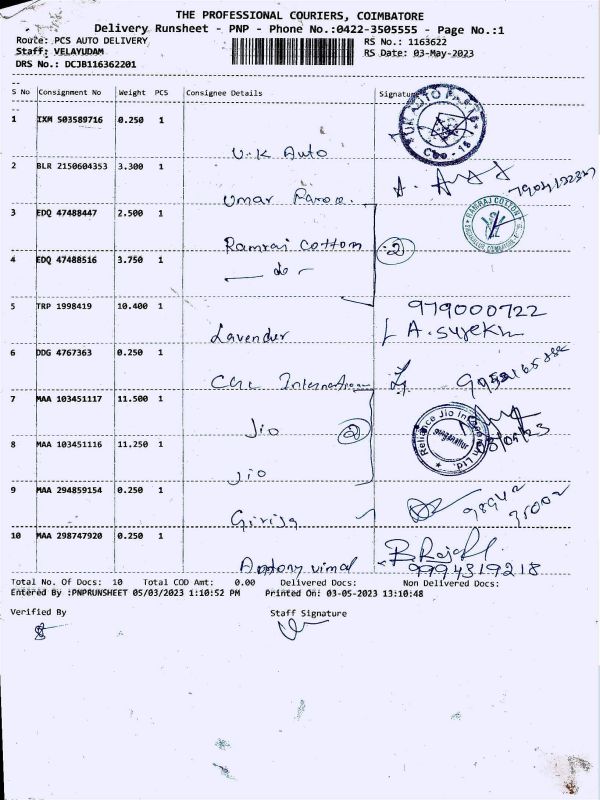 THE PROFESSIONAL COURIERS, COIMBATORE
Delivery Runsheet - PNP - Phone No.:0422-3505555 - Page No.:1
Route: PCS AUTO DELIVERY RS No.: 1163622
Staff: VELAYUDAM RS Date: 03-May-2023
DRS No.: DCJB116362201
S No Consignment No Weight PCS Consignee Details Signature
1 IXM 503589716 0.250 1
V.K Auto
2 BLR 2150604353 3.300 1
Umar
3 EDQ 47488447 2.500 1
RAMRAJ COTTON
Ramraj Cotton 2
4 EDQ 47488516 3.750 1
- do -
5 TRP 1998419 10.400 1 979000722
Lavender
6 DDG 4767363 0.250 1
7 MAA 103451117 11.500 1
Jio 2 Reliance Jio Infocomm Ltd.
8 MAA 103451116 11.250 1
Jio
9 MAA 294859154 0.250 1
Girija
10 MAA 298747920 0.250 1
Antony vimal 9994319218
Total No. Of Docs: 10 Total COD Amt: 0.00 Delivered Docs: Non Delivered Docs:
Entered By :PNPRUNSHEET 05/03/2023 1:10:52 PM Printed On: 03-05-2023 13:10:48
Verified By Staff Signature